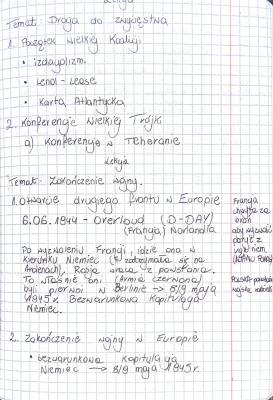 Lekcja
Temat: Droga do zwycięstwa
1. Początek Wielkiej Koalicji
• izolacjonizm
• Lend - Lease
• Karta Atlantycka
2. Konferencje Wielkiej Trójki
a) Konferencja w Teheranie
Lekcja
Temat: Zakończenie wojny.
1. Otwarcie drugiego frontu w Europie
6.06.1944 - Overloud (D-DAY)
(Francja) Normandia
Po wyzwoleniu Francji, idzie ona w
kierunku Niemiec (
zatrzymała się na
Ardenach), Rosja wraca z powstania.
To właśnie oni (Armia Czerwona)
byli pierwsi w Berlinie → 8/9 maja
1945r. Bezwarunkowa Kapitulacja
Niemiec.
Francja
chciała
aby
być z
2. Zakończenie wojny w Europie
• bezwarunkowa Kapitulacja
Niemiec → 8/9 maja 1945r.